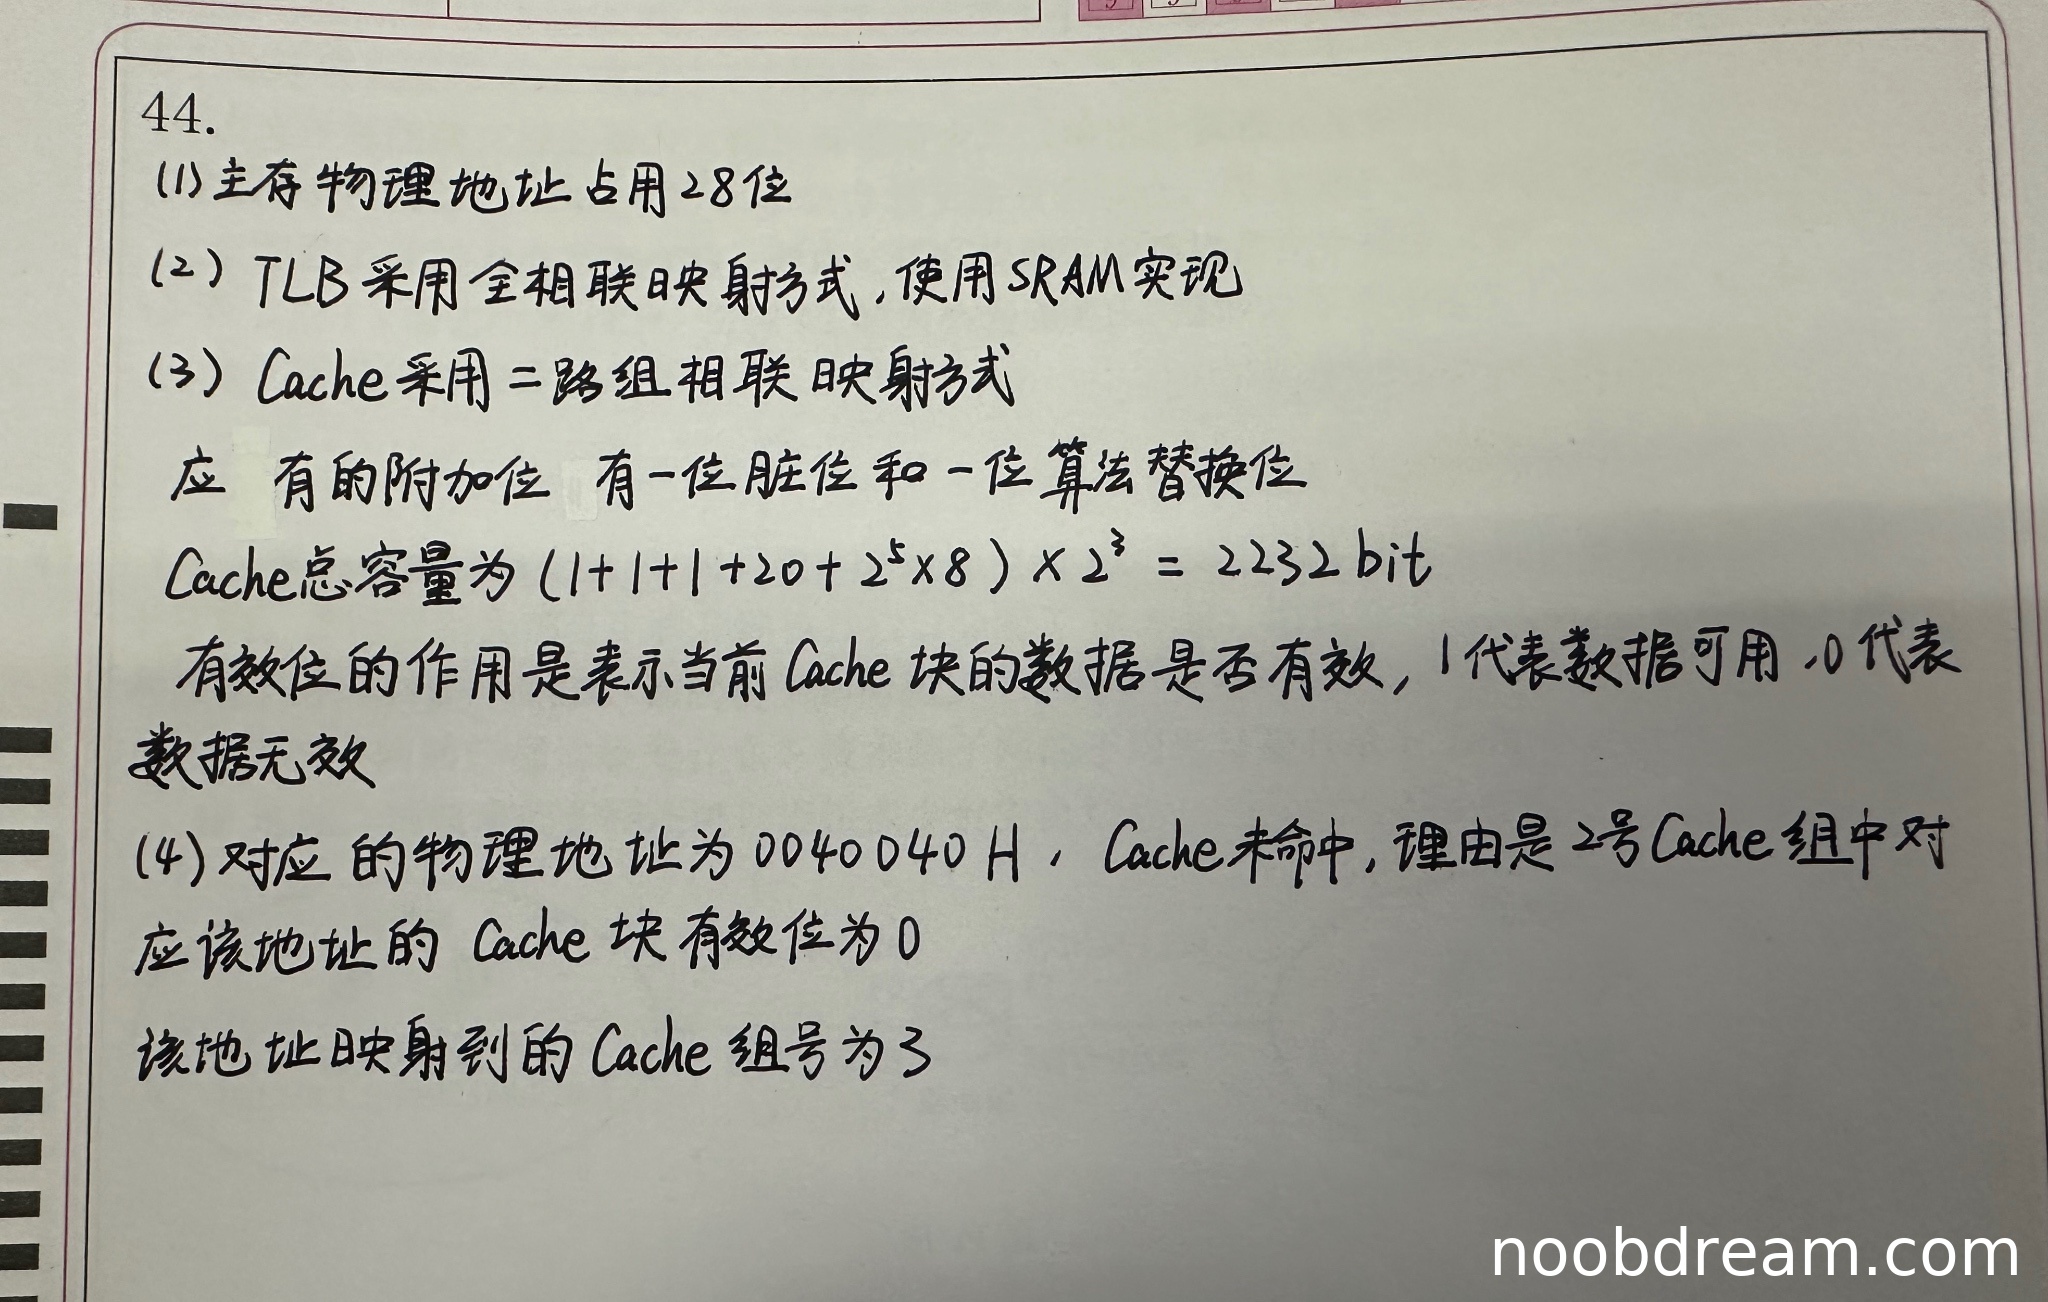 44.
(1)主存物理地址占用28位
(2) TLB采用全相联映射方式,使用SRAM实现
(3) Cache采用二路组相联映射方式
应 有的附加位 有一位脏位和一位算法替换位
Cache总容量为(1+1+1+20+2⁵×8)×2³=2232bit
有效位的作用是表示当前Cache块的数据是否有效,1代表数据可用,0代表
数据无效
(4)对应的物理地址为0040040H,Cache未命中,理由是2号Cache组中对
应该地址的 Cache 块有效位为0
该地址映射到的Cache组号为3
noobdream.com